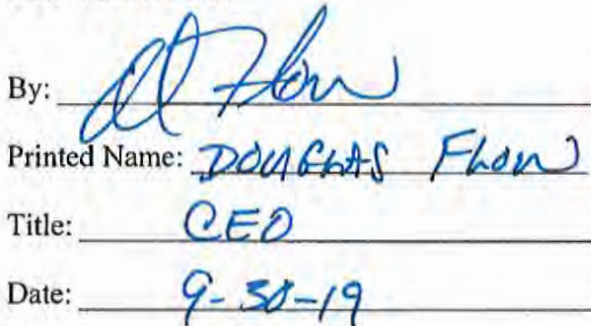 By: D Flow
Printed Name: DOUGLAS FLOW
Title: CEO
Date: 9-30-19